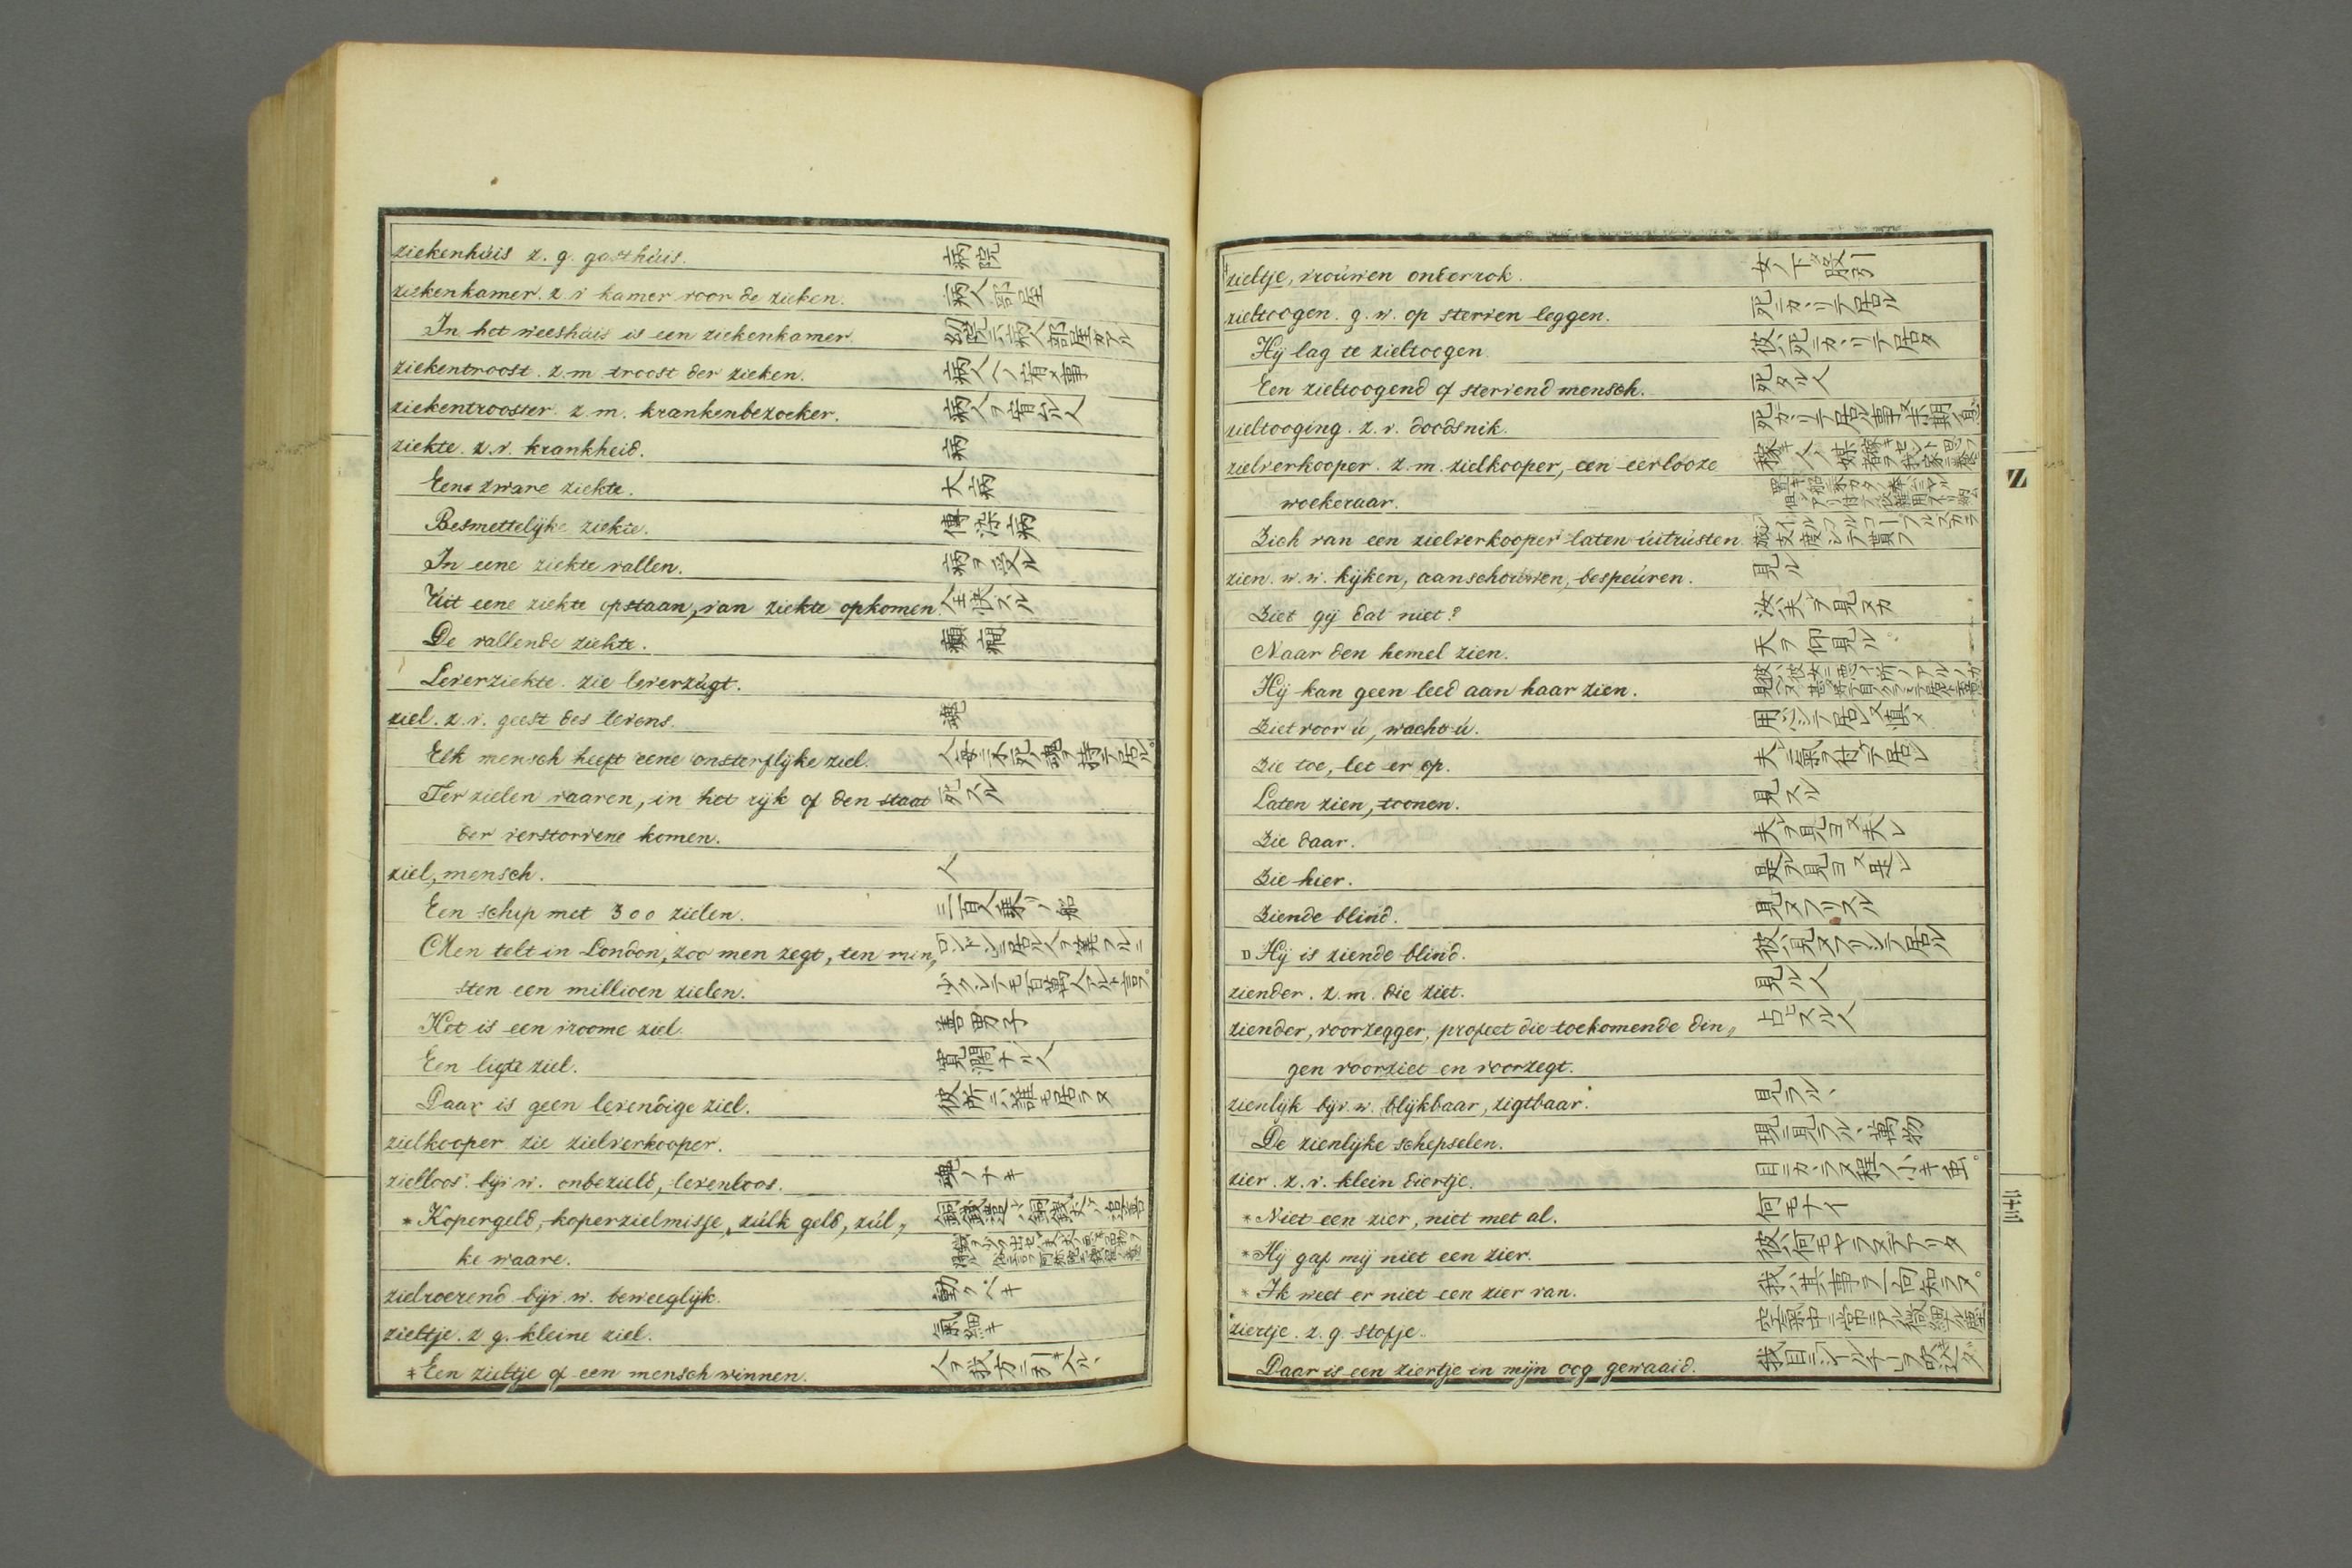 ziekenhúis z. g. gasthúis. 病院
ziekenkamer. z. v kamer voor de zieken. 病人部屋
In het weeshúis is een ziekenkamer.
ziekentroost. z. m troost der zieken. 病人ヘノ宥メ事
ziekentrooster. z. m. krankenbezoeker. 病人ヲ宥ムル人
ziekte. z. v. krankheid. 病
Eene zware ziekte. 大病
Besmettelyke ziekte. 傳染病
In eene ziekte vallen. 病ヲ受ル
Uit eene ziekte opstaan, van ziekte opkomen. 全快スル
De vallende ziekte. 癲癇
Leverziekte. zie leverzúgt.
ziel. z. v. geest des levens. 魂
Elk mensch heeft eene onsterflyke ziel.
Ter zielen vaaren, in het ryk of den staat 死スル
der verstorvene komen.
ziel, mensch. 人
Een schip met 300 zielen. 三百人乗リノ船
Men telt in London, zoo men zegt, ten min„
sten een millioen zielen. 少クシテモ百萬人アルト言フ。
Het is een vroome ziel. 善男子
Een ligte ziel. 寛濶ナル人
Daar is geen levendige ziel. 彼所ニハ誰モ居ラヌ
zielkooper. zie zielverkooper.
zielloos. byv. w. onbezield, levenloos. 魂ノナキ
* Kopergeld, koperzielmisse, zúlk geld, zúl„
ke waare.
zielroerend byv. w. beweeglyk. 動クベキ
zieltje. z g. kleine ziel. 氣細キ
* Een zieltje of een mensch winnen. 人ヲ我方ニ引キ入ル、
zieltje, vroúwen onderrok.
zieltoogen. g. w. op sterven leggen. 死ニカヽリテ居ル
Hy lag te zieltoogen. 彼ハ死ニカヽリテ居タ
Een zieltoogend of stervend mensch. 死タル人
zieltooging. z. v. doodsnik.
zielverkooper. z. m. zielkooper, een eerlooze
woekeraar.
Zich van een zielverkooper laten úitrústen.
zien. w. w. kyken, aanschoúwen, bespeúren. 見ル
Ziet gy dat niet? 汝ハ夫レヲ見ヌカ
Naar den hemel zien. 天ヲ仰見ル。
Hy kan geen leed aan haar zien.
Ziet voor ú, wacht ú.
Zie toe, let er op. 夫レニ氣ヲ付テ居レ
Laten zien, toonen. 見スル
Zie daar. 夫レヲ見ヨ又夫レ
Zie hier. 是レヲ見ヨ又是レ
Ziende blind. 見ヌフリスル
Hy is ziende blind. 彼ハ見ヌフリシテ居ル
ziender. z. m. die ziet. 見ル人
ziender, voorzegger, profeet die toekomende din„ 占ヒスル人
gen voorziet en voorzegt.
zienlyk byv. w. blykbaar, zigtbaar. 見ラル、
De zienlyke schepselen. 現ニ見ラル、萬物
zier. z. v. klein diertje. 目ニカヽラヌ程ノ小キ虫。
* Niet een zier, niet met al. 何モナイ
* Hy gaf my niet een zier. 彼ハ何モヤラヌデアリタ
* Ik weet er niet een zier van. 我ハ其事ヲ一向知ラヌ。
ziertje. z. g. stofje.
Daar is een ziertje in mijn oog gewaaid.
Z